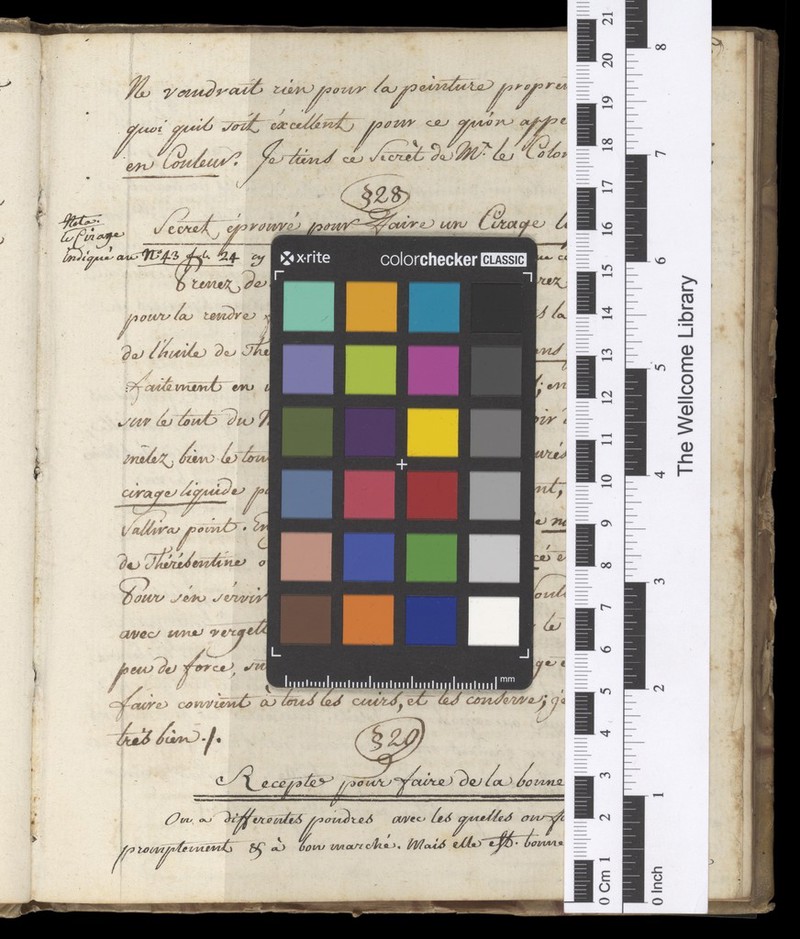 Ne voudrait rien pour la peinture propre
quoi quil soit éxcellent, pour ce qu'on appe
en Couleur. Je tiens ce Secrèt de Mr. le Colon
§28
Nota:
le Cirage
indiqué au N°43 fol. 24 cy
Secret éprouvé pour Faire un Cirage
Prenez de
rez
pour la rendre
s la
de l'huile de Thé
ns
faitement en
; en
sur le tout du
oir
mêlez bien le tout
urés
cirage liquide
nt,
Sallira point. En
de Thérébentine o
Pour s'én sérvir
avec une vergett
le
peu de force, su
ge
faire convient à tous les cuirs, et les conserve;
très bien ./.
§29
Recepte pour faire de la bonne
On a différentes poudres avec les quelles on
promptement & à bon marché. Mais elle est bonne
x·rite
colorchecker CLASSIC
mm
The Wellcome Library
0 Cm 1 2 3 4 5 6 7 8 9 10 11 12 13 14 15 16 17 18 19 20 21
0 Inch 1 2 3 4 5 6 7 8